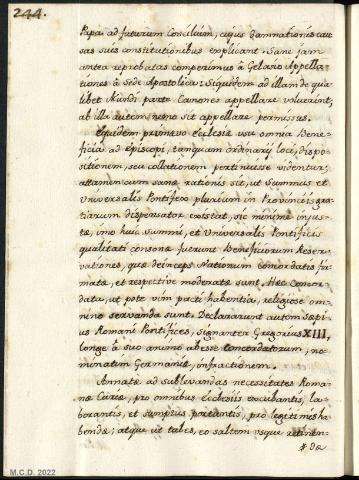 244.
Papa ad futurum Concilium, cujus damnationis cau
sas suis constitutionibus explicant. Sane jam
antea reprobatas comperimus à Gelasio Appella-
tiones à Sede Apostolica: Siquidem ad illam de qua
libet Mundi parte Canones appellare voluerint,
ab illa autem nemo sit appellare permissus.
Equidem primævo Ecclesiæ usu omnia Bene-
ficia ad episcopi, tanquam ordinarij loci, dispo-
sitionem, seu collationem pertinuisse videntur;
attamen cum sane rationis sit, ut Summus et
Universalis Pontifex plurium in Provinciis gra-
tiarum dispensator existat, sic minime injus-
tæ, imo huic summi, et Universalis Pontificis
qualitati consonæ fuerunt Beneficiorum Reser-
vationes, quæ deinceps Nationum concordatis fir-
matæ, et respective moderatæ sunt. Hæc Concor-
data, ut pote vim pacti habentia, religiose om-
nino servanda sunt. Declararunt autem sæpi-
us Romani Pontifices, signanter Gregorius XIII,
longe à suo animo abesse concordatorum, no-
minatim Germaniæ, infractionem.
Annatæ ad sublevandas necessitates Roma-
næ Curiæ, pro omnibus Ecclesiis excubantis, la-
borantis, et sumptus portantis, pro legitimis ha-
bendæ; atque ut tales, eo saltem usque retinen-
dæ
M.C.D. 2022